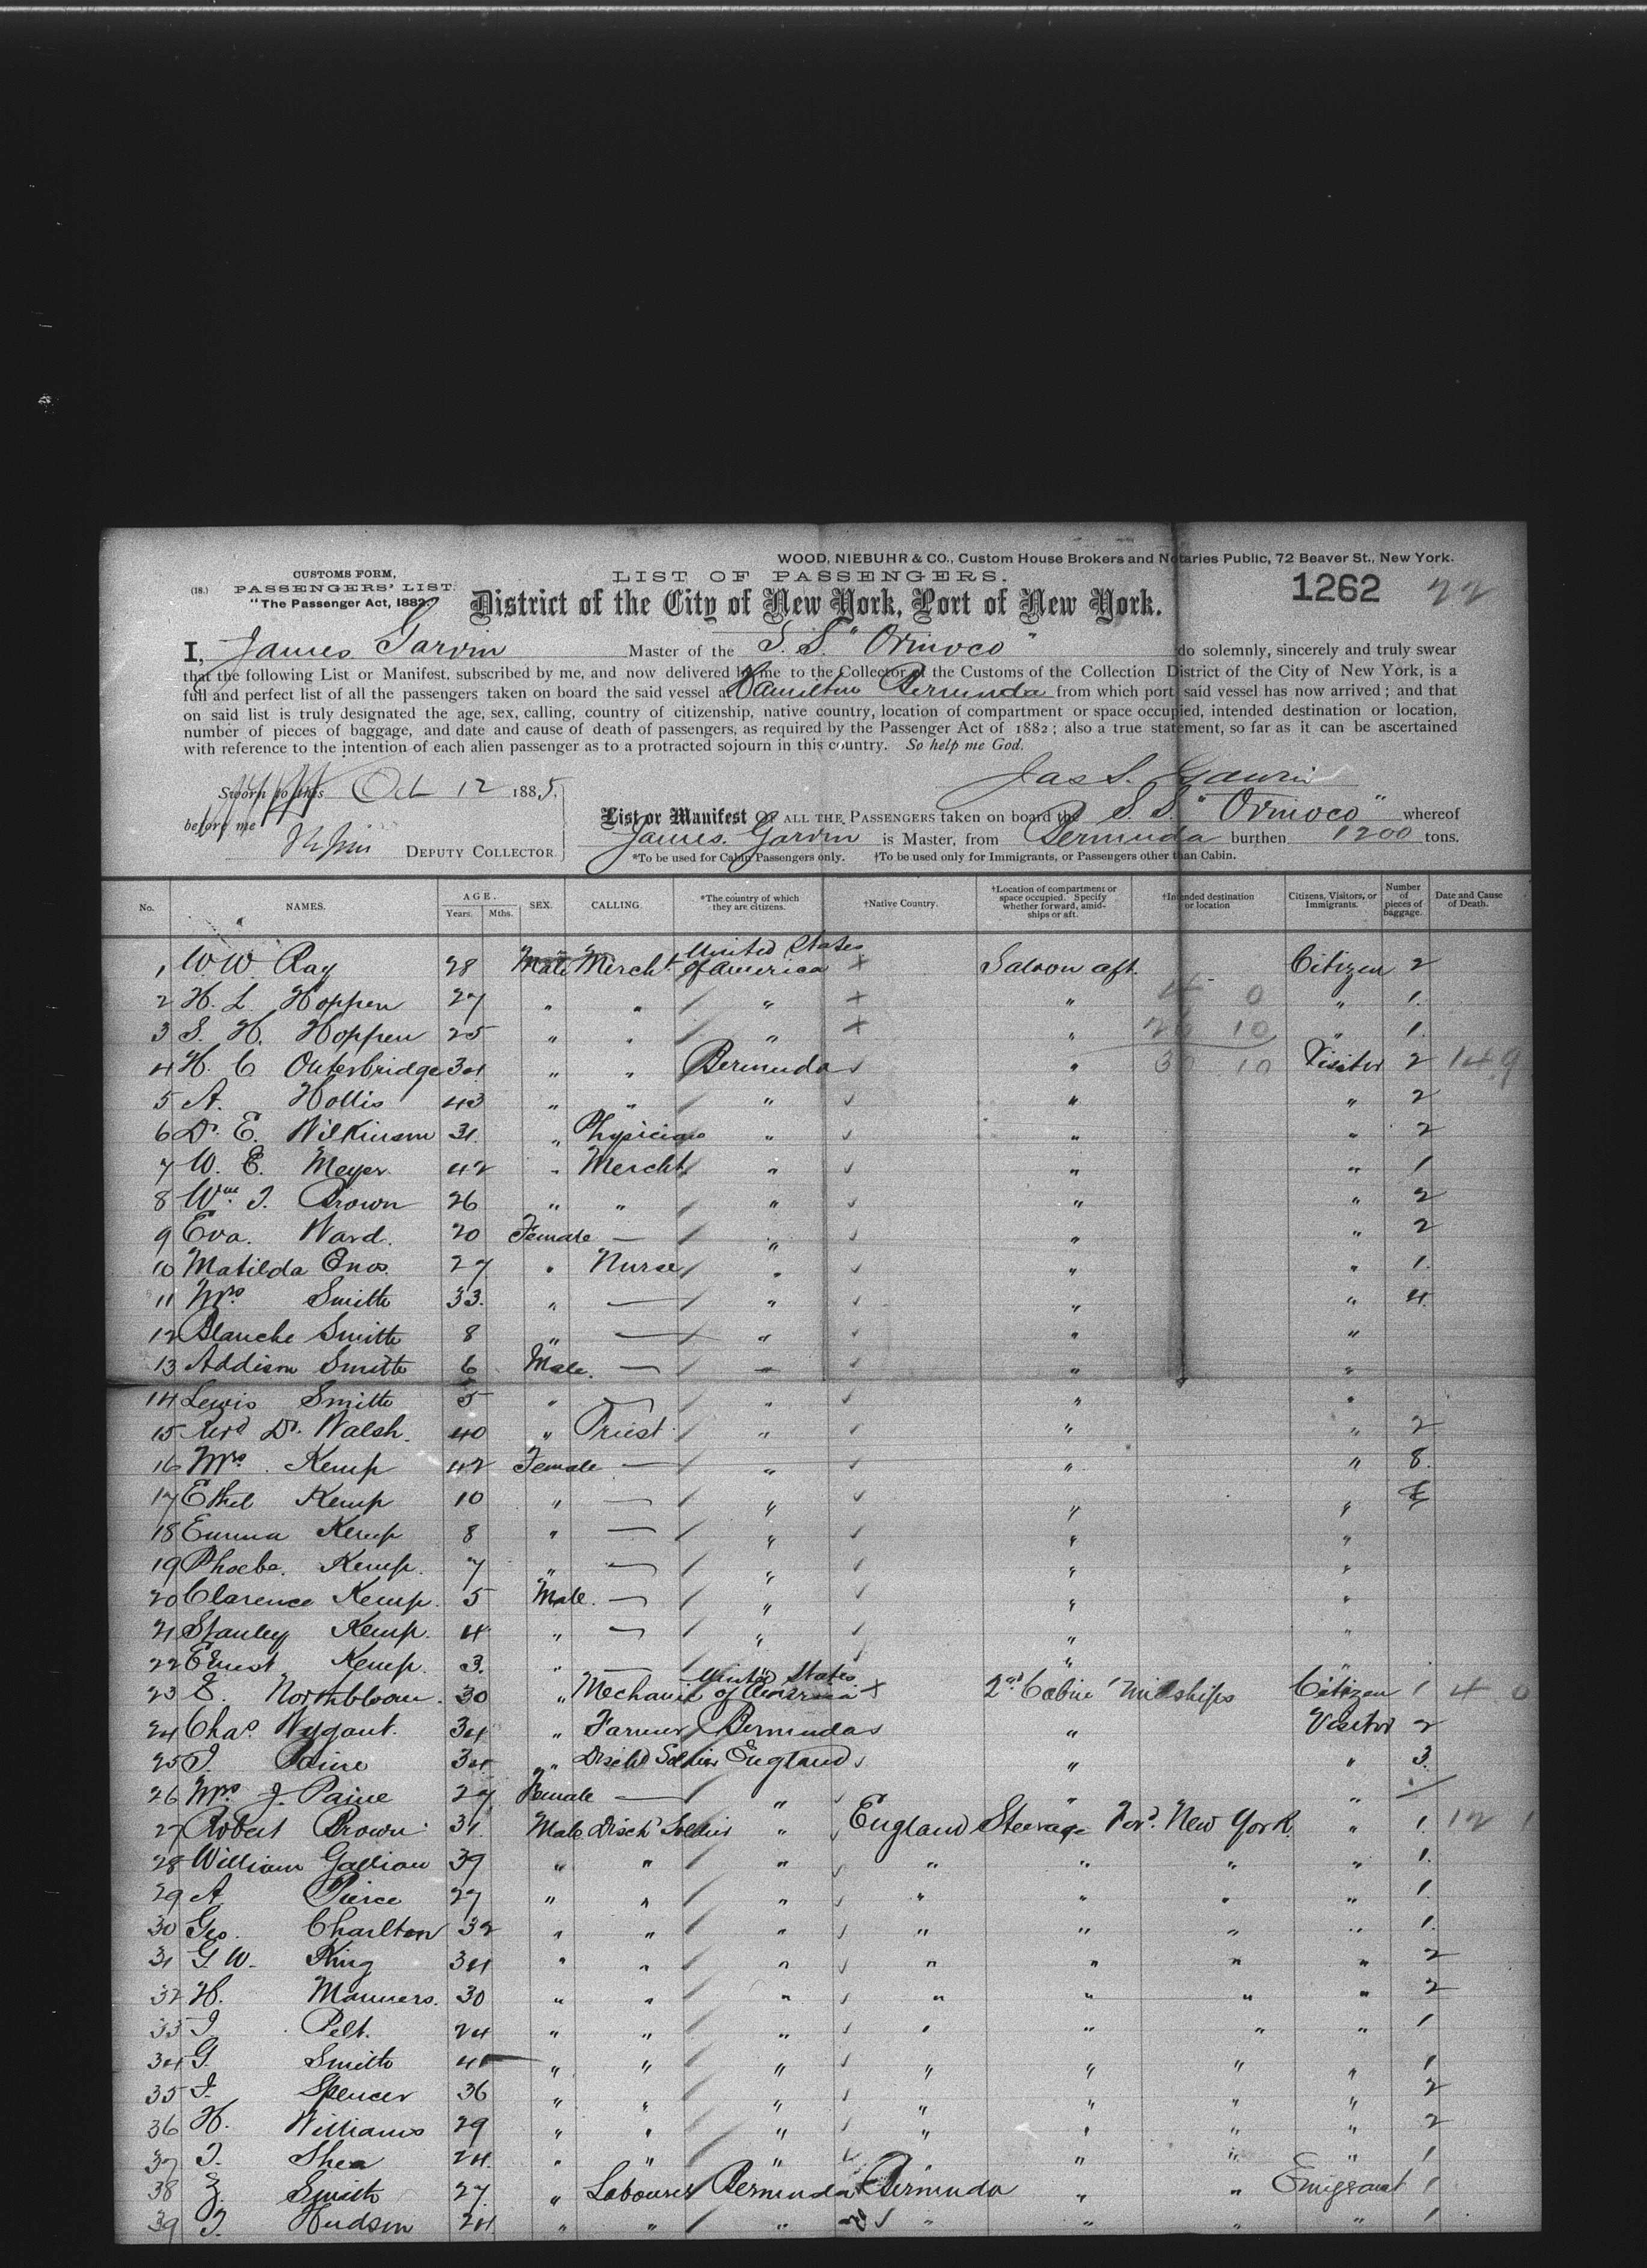 WOOD, NIEBUHR & CO., Custom House Brokers and Notaries Public, 72 Beaver St., New York.
CUSTOMS FORM, LIST OF PASSENGERS.
(18.) PASSENGERS' LIST. 1262 22
"The Passenger Act, 1882." District of the City of New York, Port of New York.
I, James Garvin Master of the S.S. "Orinoco" do solemnly, sincerely and truly swear
that the following List or Manifest, subscribed by me, and now delivered by me to the Collector of the Customs of the Collection District of the City of New York, is a
full and perfect list of all the passengers taken on board the said vessel at Hamilton Bermuda from which port said vessel has now arrived; and that
on said list is truly designated the age, sex, calling, country of citizenship, native country, location of compartment or space occupied, intended destination or location,
number of pieces of baggage, and date and cause of death of passengers, as required by the Passenger Act of 1882; also a true statement, so far as it can be ascertained
with reference to the intention of each alien passenger as to a protracted sojourn in this country. So help me God.
Jas S. Garvin
Sworn to this Oct 12 1885.
before me
List or Manifest OF ALL THE PASSENGERS taken on board the S.S. "Orinoco" whereof
DEPUTY COLLECTOR James Garvin is Master, from Bermuda burthen 1200 tons.
*To be used for Cabin Passengers only. †To be used only for Immigrants, or Passengers other than Cabin.
No. NAMES. AGE. Years. Mths. SEX. CALLING. *The country of which they are citizens. †Native Country. †Location of compartment or space occupied. Specify whether forward, amidships or aft. †Intended destination or location Citizens, Visitors, or Immigrants. Number of pieces of baggage. Date and Cause of Death.
1 W. W. Ray 28 Male Mercht United States of America + Saloon aft Citizen 2
2 H. L Hoppen 27 " " " + " 4 0 " 1.
3 S. H. Hoppen 25 " " " + " 26 10 " 1.
4 H. C Outerbridge 34 " " Bermuda " 30 10 Visitor 2 14.9
5 A. Hollis 43 " " " " " 2
6 Dr. E. Wilkinson 31. " Physician " " " 2
7 W. E. Meyer 42 " Mercht " " " 1
8 Wm. J. Brown 26 " " " " " 2
9 Eva. Ward. 20 Female — " " " 2
10 Matilda Enos. 27 " Nurse " " " 1.
11 Mrs Smith 33. " — " " " 4
12 Blanche Smith 8 " — " " "
13 Addison Smith 6 Male. — " " "
14 Lewis Smith 5 " " " "
15 Revd Dr. Walsh. 40 " Priest " " " 2
16 Mrs. Kemp 42 Female — " " " 8.
17 Ethel Kemp 10 " — " " "
18 Emma Kemp 8 " — " " "
19 Phoebe. Kemp. 7 " — " " "
20 Clarence Kemp. 5 Male. — " " "
21 Stanley Kemp. 4 " — " " "
22 Ernest Kemp. 3. " — " " "
23 E. Northbloom. 30 " Mechanic United States of America + 2nd Cabin Midships Citizen 1 4 0
24 Chas Wygant. 34 " Farmer Bermuda " Visitor 2
25 J. Paine 34 " Dischd Soldier England " " 3.
26 Mrs J. Paine 27 Female — " " "
27 Robert Brown 31. Male Disch Soldier " England Steerage For'd. New York " 1. 12 1
28 William Gallian 39 " " " " " " " 1.
29 A Pierce 27 " " " " " " " 1.
30 Geo. Charlton 32 " " " " " " " 1.
31 G W. King 34 " " " " " " " 2
32 H. Manners. 30 " " " " " " " 2
33 J Pelt. 24 " " " " " " " 1
34 G. Smith " " " " " " " 1
35 J. Spencer 36 " " " " " " " 2
36 H. Williams 29 " " " " " " " 2
37 J. Shea 24. " " " " " " " 1
38 Smith 27. " Labourer Bermuda Bermuda " " Emigrant 1
39 J. Hudson 24. " " " " " " " 1